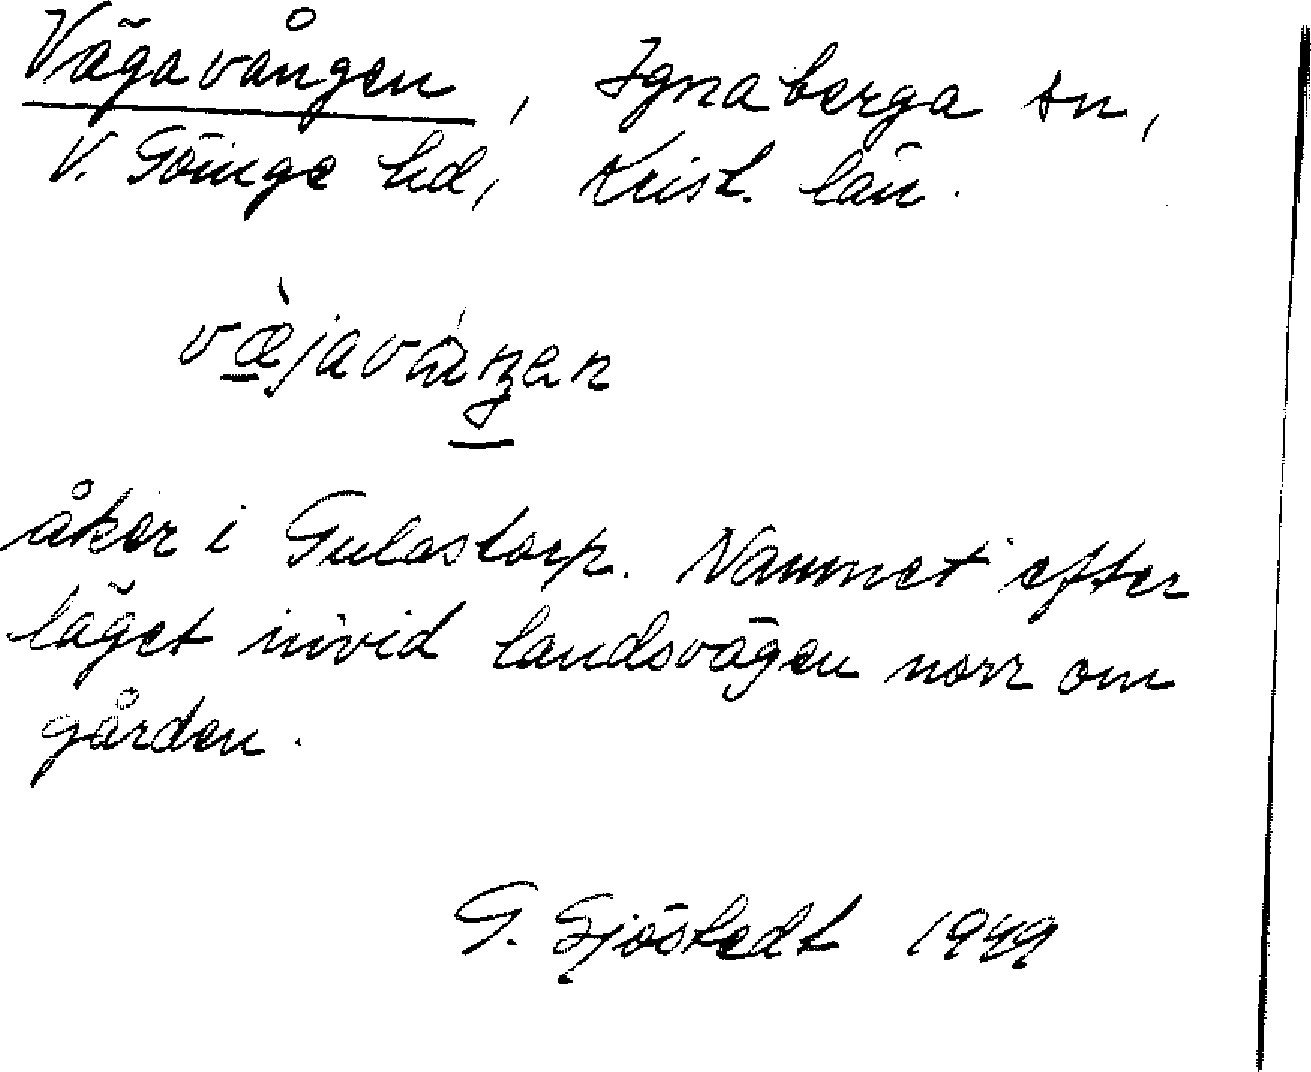 Vägavången, Ignaberga sn,
V. Göinge hd, Krist. län.
væ̀javáŋen
åker i Gulastorp. Namnet efter
läget invid landsvägen norr om
gården.
G. Sjöstedt 1949